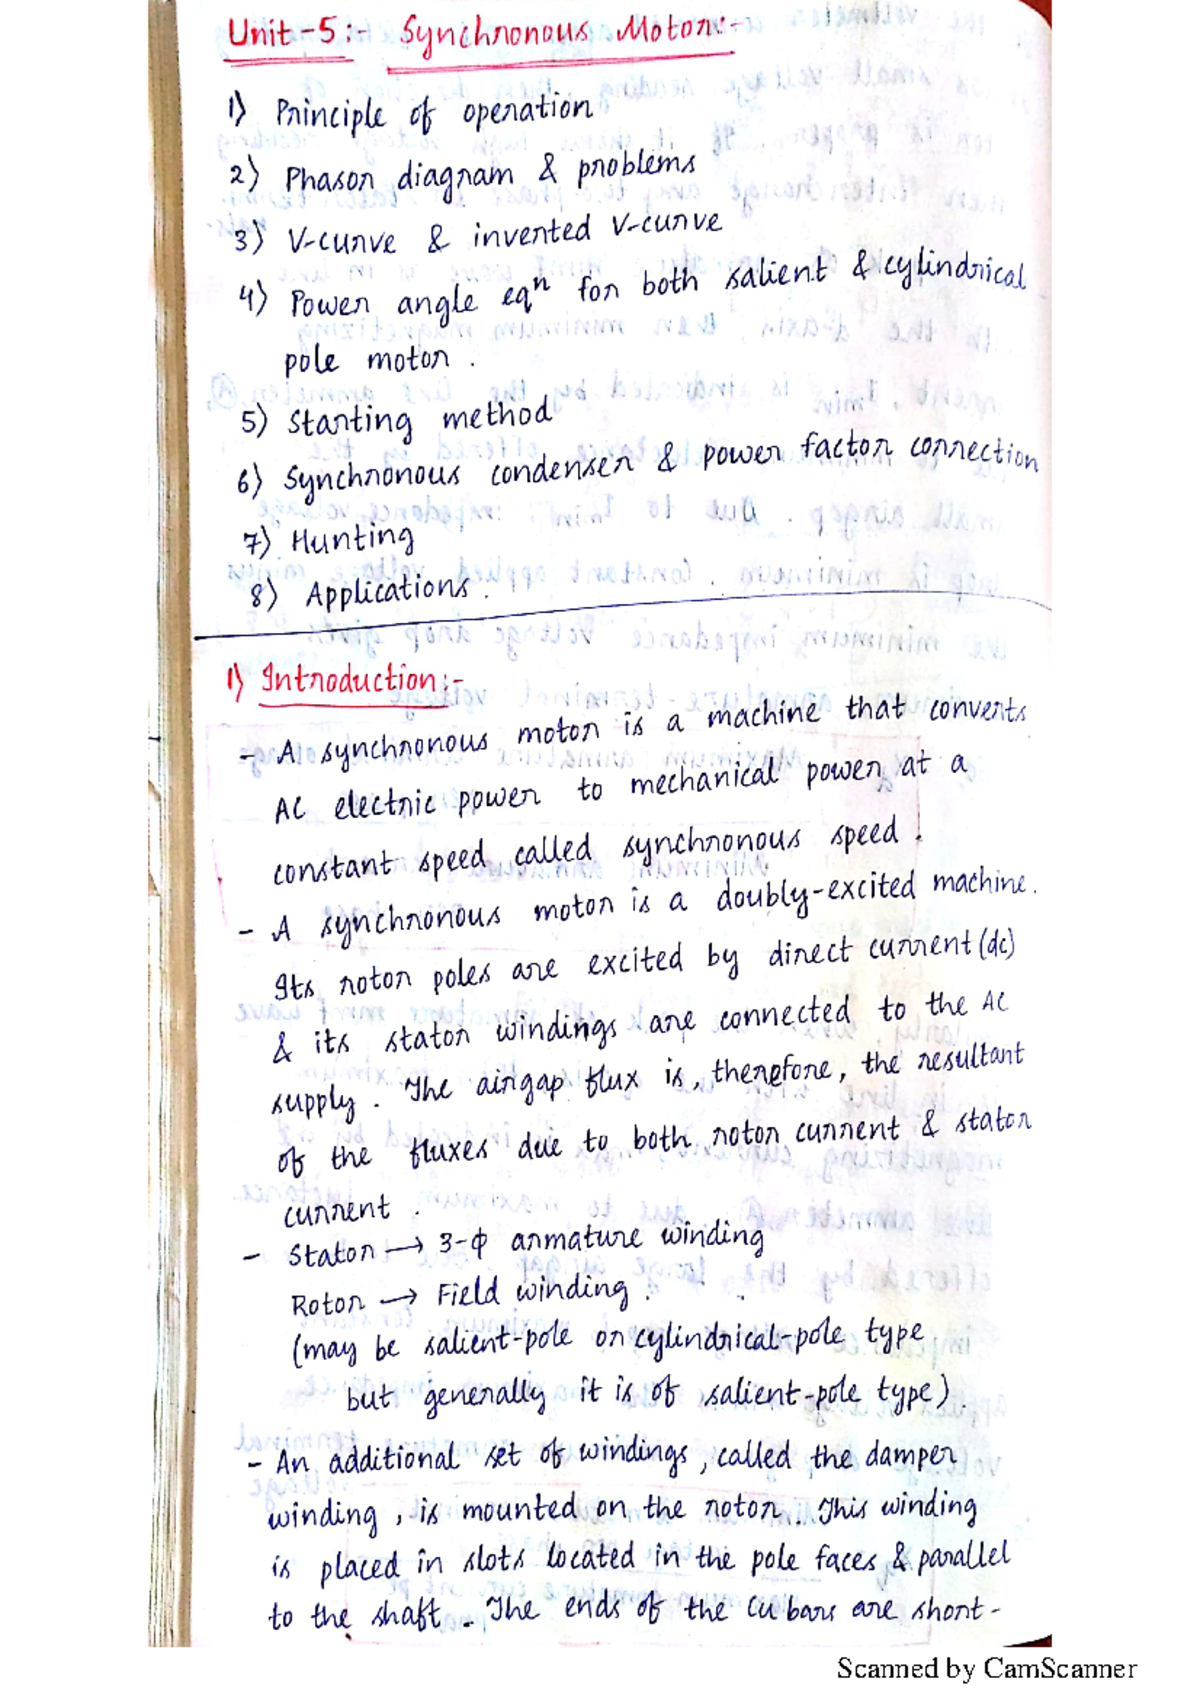 Unit-5:- Synchronous Motor:-
1) Principle of operation
2) Phasor diagram & problems
3) V-curve & inverted V-curve
4) Power angle eqn for both salient & cylindrical
pole motor.
5) Starting method
6) Synchronous condenser & power factor correction
7) Hunting
8) Applications.
1) Introduction:-
- A synchronous motor is a machine that converts
AC electric power to mechanical power at a
constant speed called synchronous speed.
- A synchronous motor is a doubly-excited machine.
Its rotor poles are excited by direct current (dc)
& its stator windings are connected to the AC
supply. The airgap flux is, therefore, the resultant
of the fluxes due to both rotor current & stator
current.
- Stator → 3-ϕ armature winding
Rotor → Field winding.
(may be salient-pole or cylindrical-pole type
but generally it is of salient-pole type).
- An additional set of windings, called the damper
winding, is mounted on the rotor. This winding
is placed in slots located in the pole faces & parallel
to the shaft. The ends of the cu bars are short-
Scanned by CamScanner